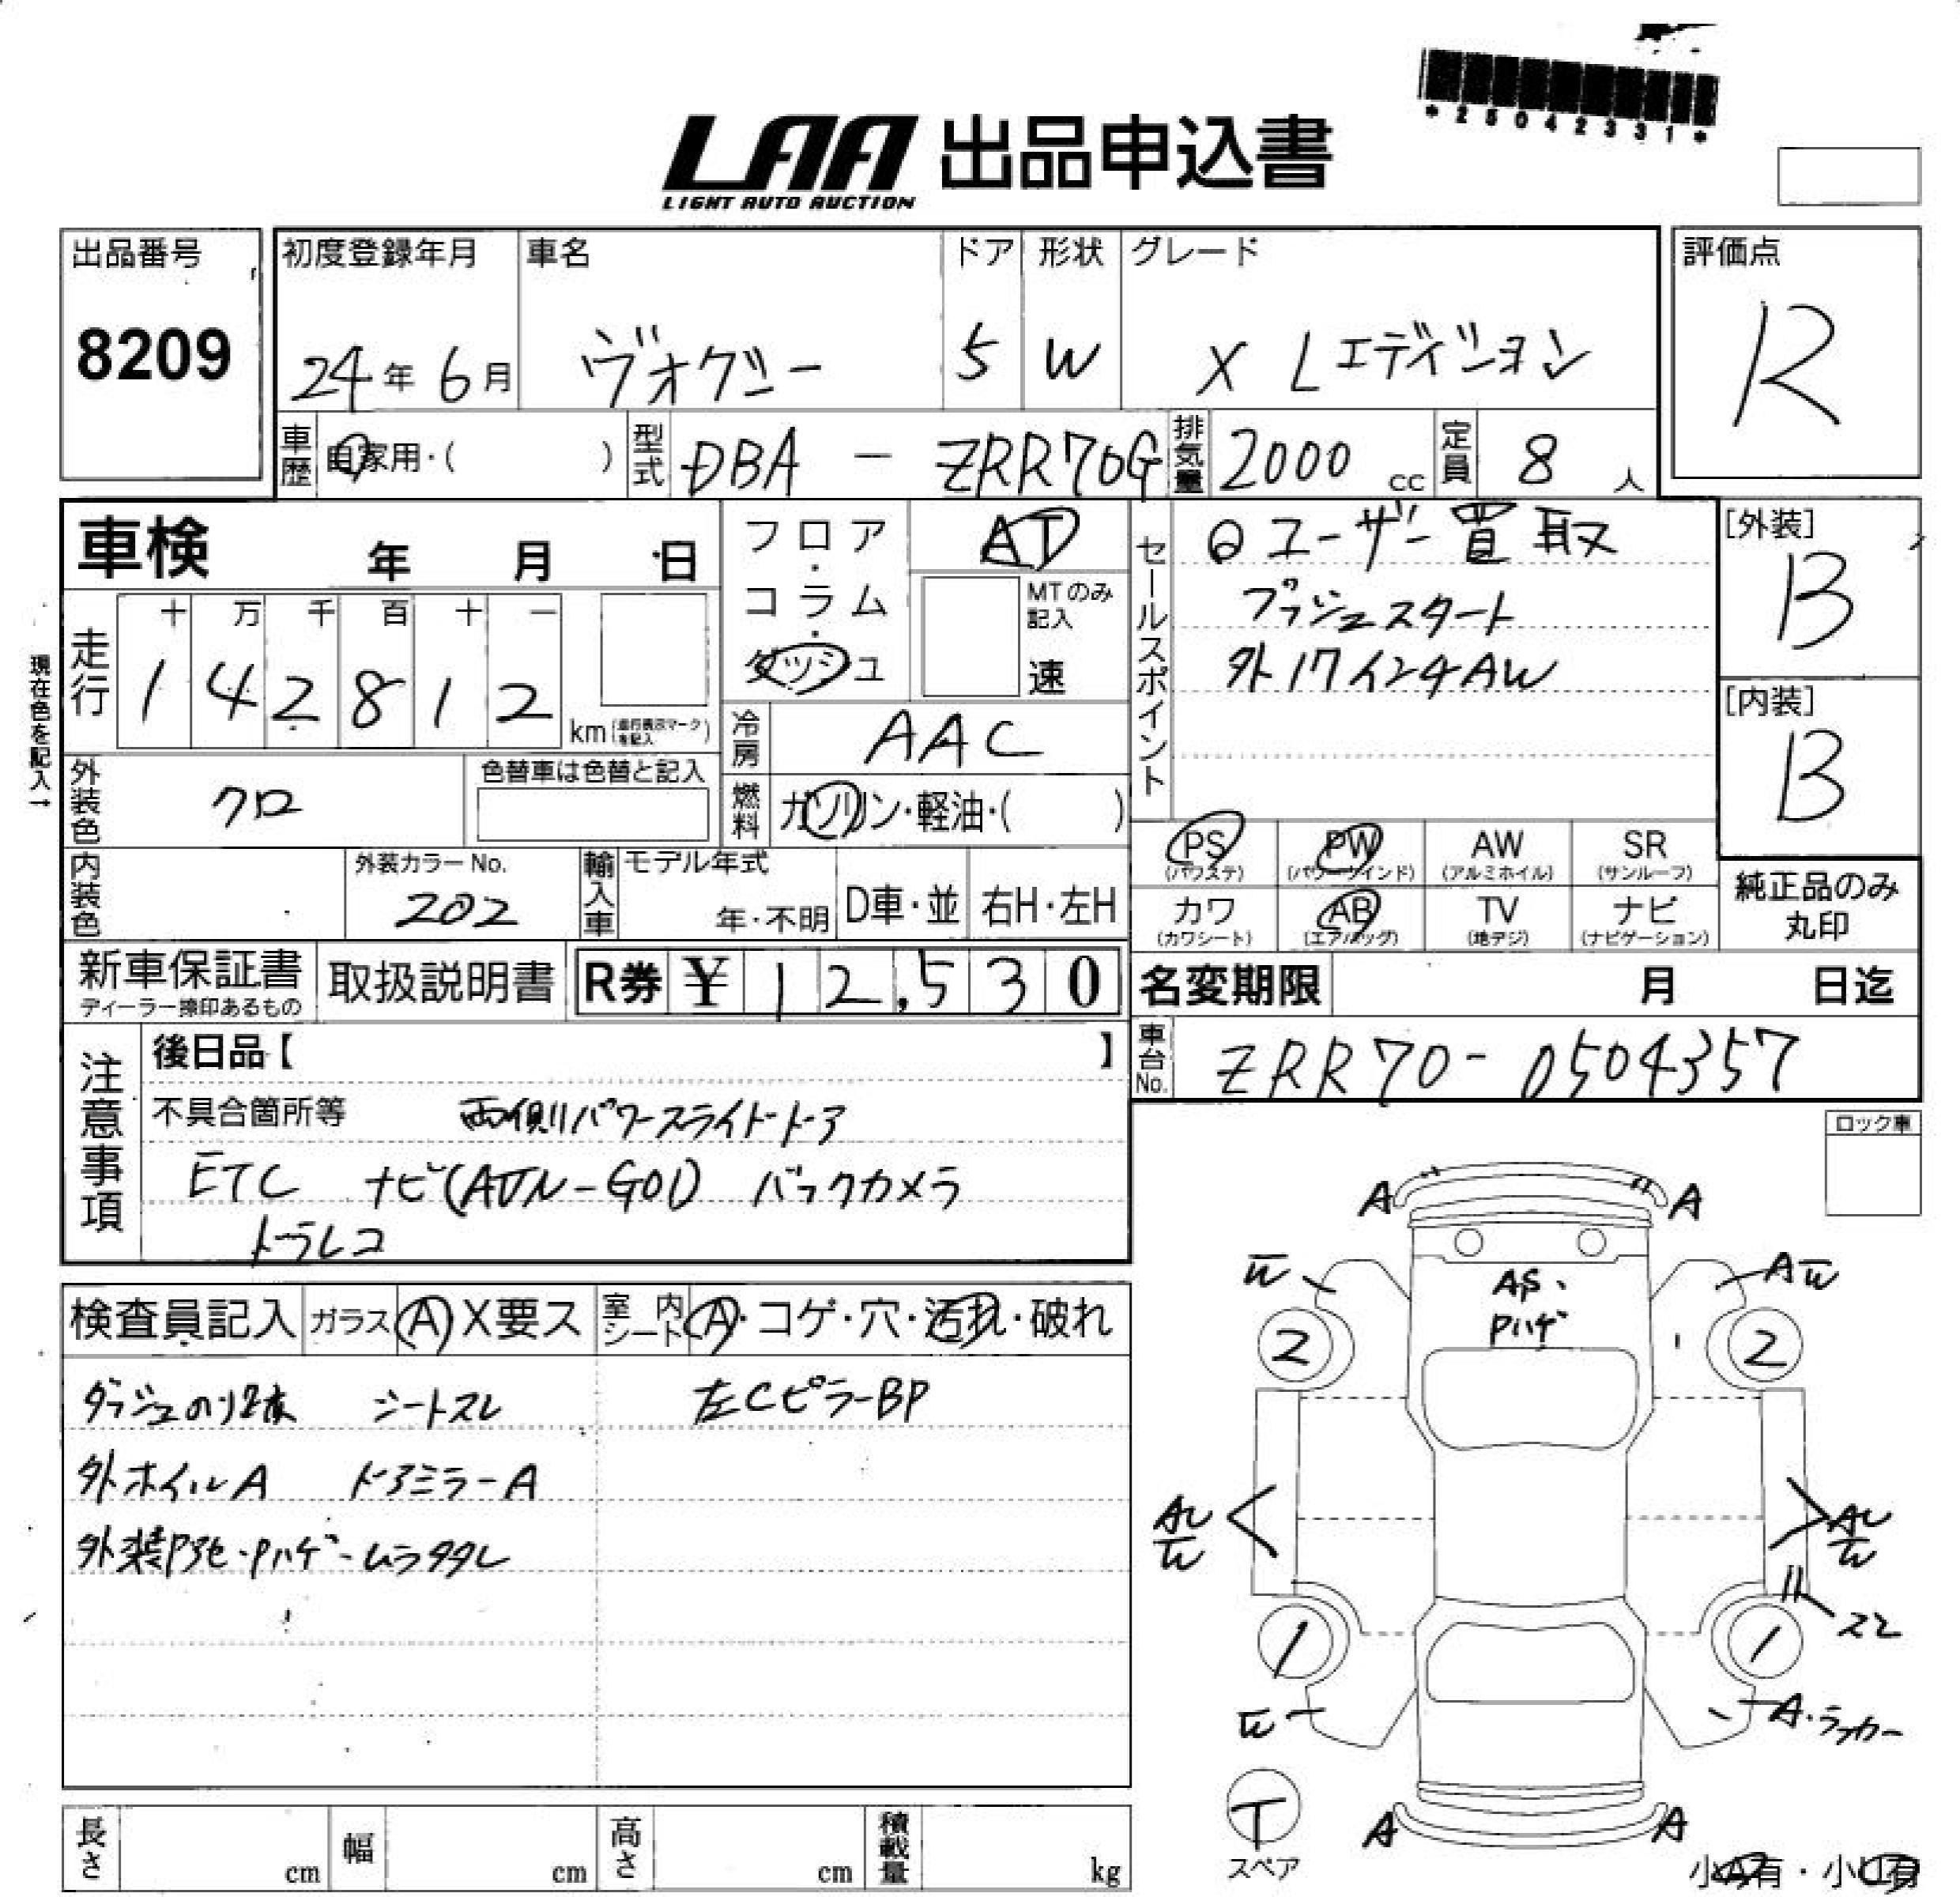 *25042331*
LAA 出品申込書
LIGHT AUTO AUCTION
出品番号
8209
初度登録年月
24年 6月
車名
ヴォクシー
ドア
5
形状
W
グレード
X Lエディション
評価点
R
車歴
自家用・( )
型式
DBA - ZRR70G
排気量
2000 cc
定員
8 人
車検 年 月 日
フロア・コラム・ダッシュ
AT
MTのみ記入
速
セールスポイント
ユーザー買取
プッシュスタート
外17インチAW
[外装]
B
[内装]
B
現在色を記入→
走行
十 万 千 百 十 一
1 4 2 8 1 2
km (走行表示マークを記入)
冷房
AAC
燃料
ガソリン・軽油・( )
外装色
クロ
色替車は色替と記入
内装色
外装カラーNo.
202
輸入車
モデル年式
年・不明
D車・並
右H・左H
PS
(パワステ)
PW
(パワーウインド)
AW
(アルミホイル)
SR
(サンルーフ)
カワ
(カワシート)
AB
(エアバッグ)
TV
(地デジ)
ナビ
(ナビゲーション)
純正品のみ
丸印
新車保証書
ディーラー捺印あるもの
取扱説明書
R券 ¥ 12,530
名変期限 月 日迄
車台No.
ZRR70-0504357
注意事項
後日品【 】
不具合箇所等 両側パワースライドドア
ETC ナビ(AVN-G01) バックカメラ
ドラレコ
ロック車
検査員記入
ガラス A X要ス
室内シート A・コゲ・穴・汚れ・破れ
ダッシュのり跡 シートスレ
左CピラーBP
外ホイルA ドアミラーA
外装Pアセ・Pハゲ・ムラ
A A
W
AW
AS・
Pハゲ
2 2
AU
W
AU
W
スミ
1 1
W
A・ラッカー
T
スペア
A A
小A有・小U有
長さ cm
幅 cm
高さ cm
積載量 kg